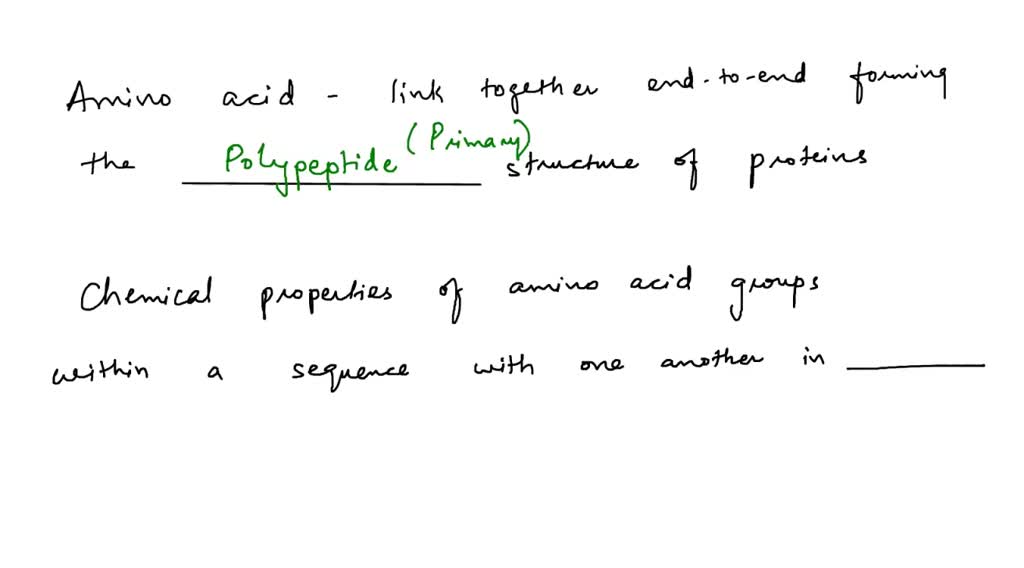 Amino acid - link together end-to-end forming
the Polypeptide (Primary) structure of proteins
Chemical properties of amino acid groups
within a sequence with one another in